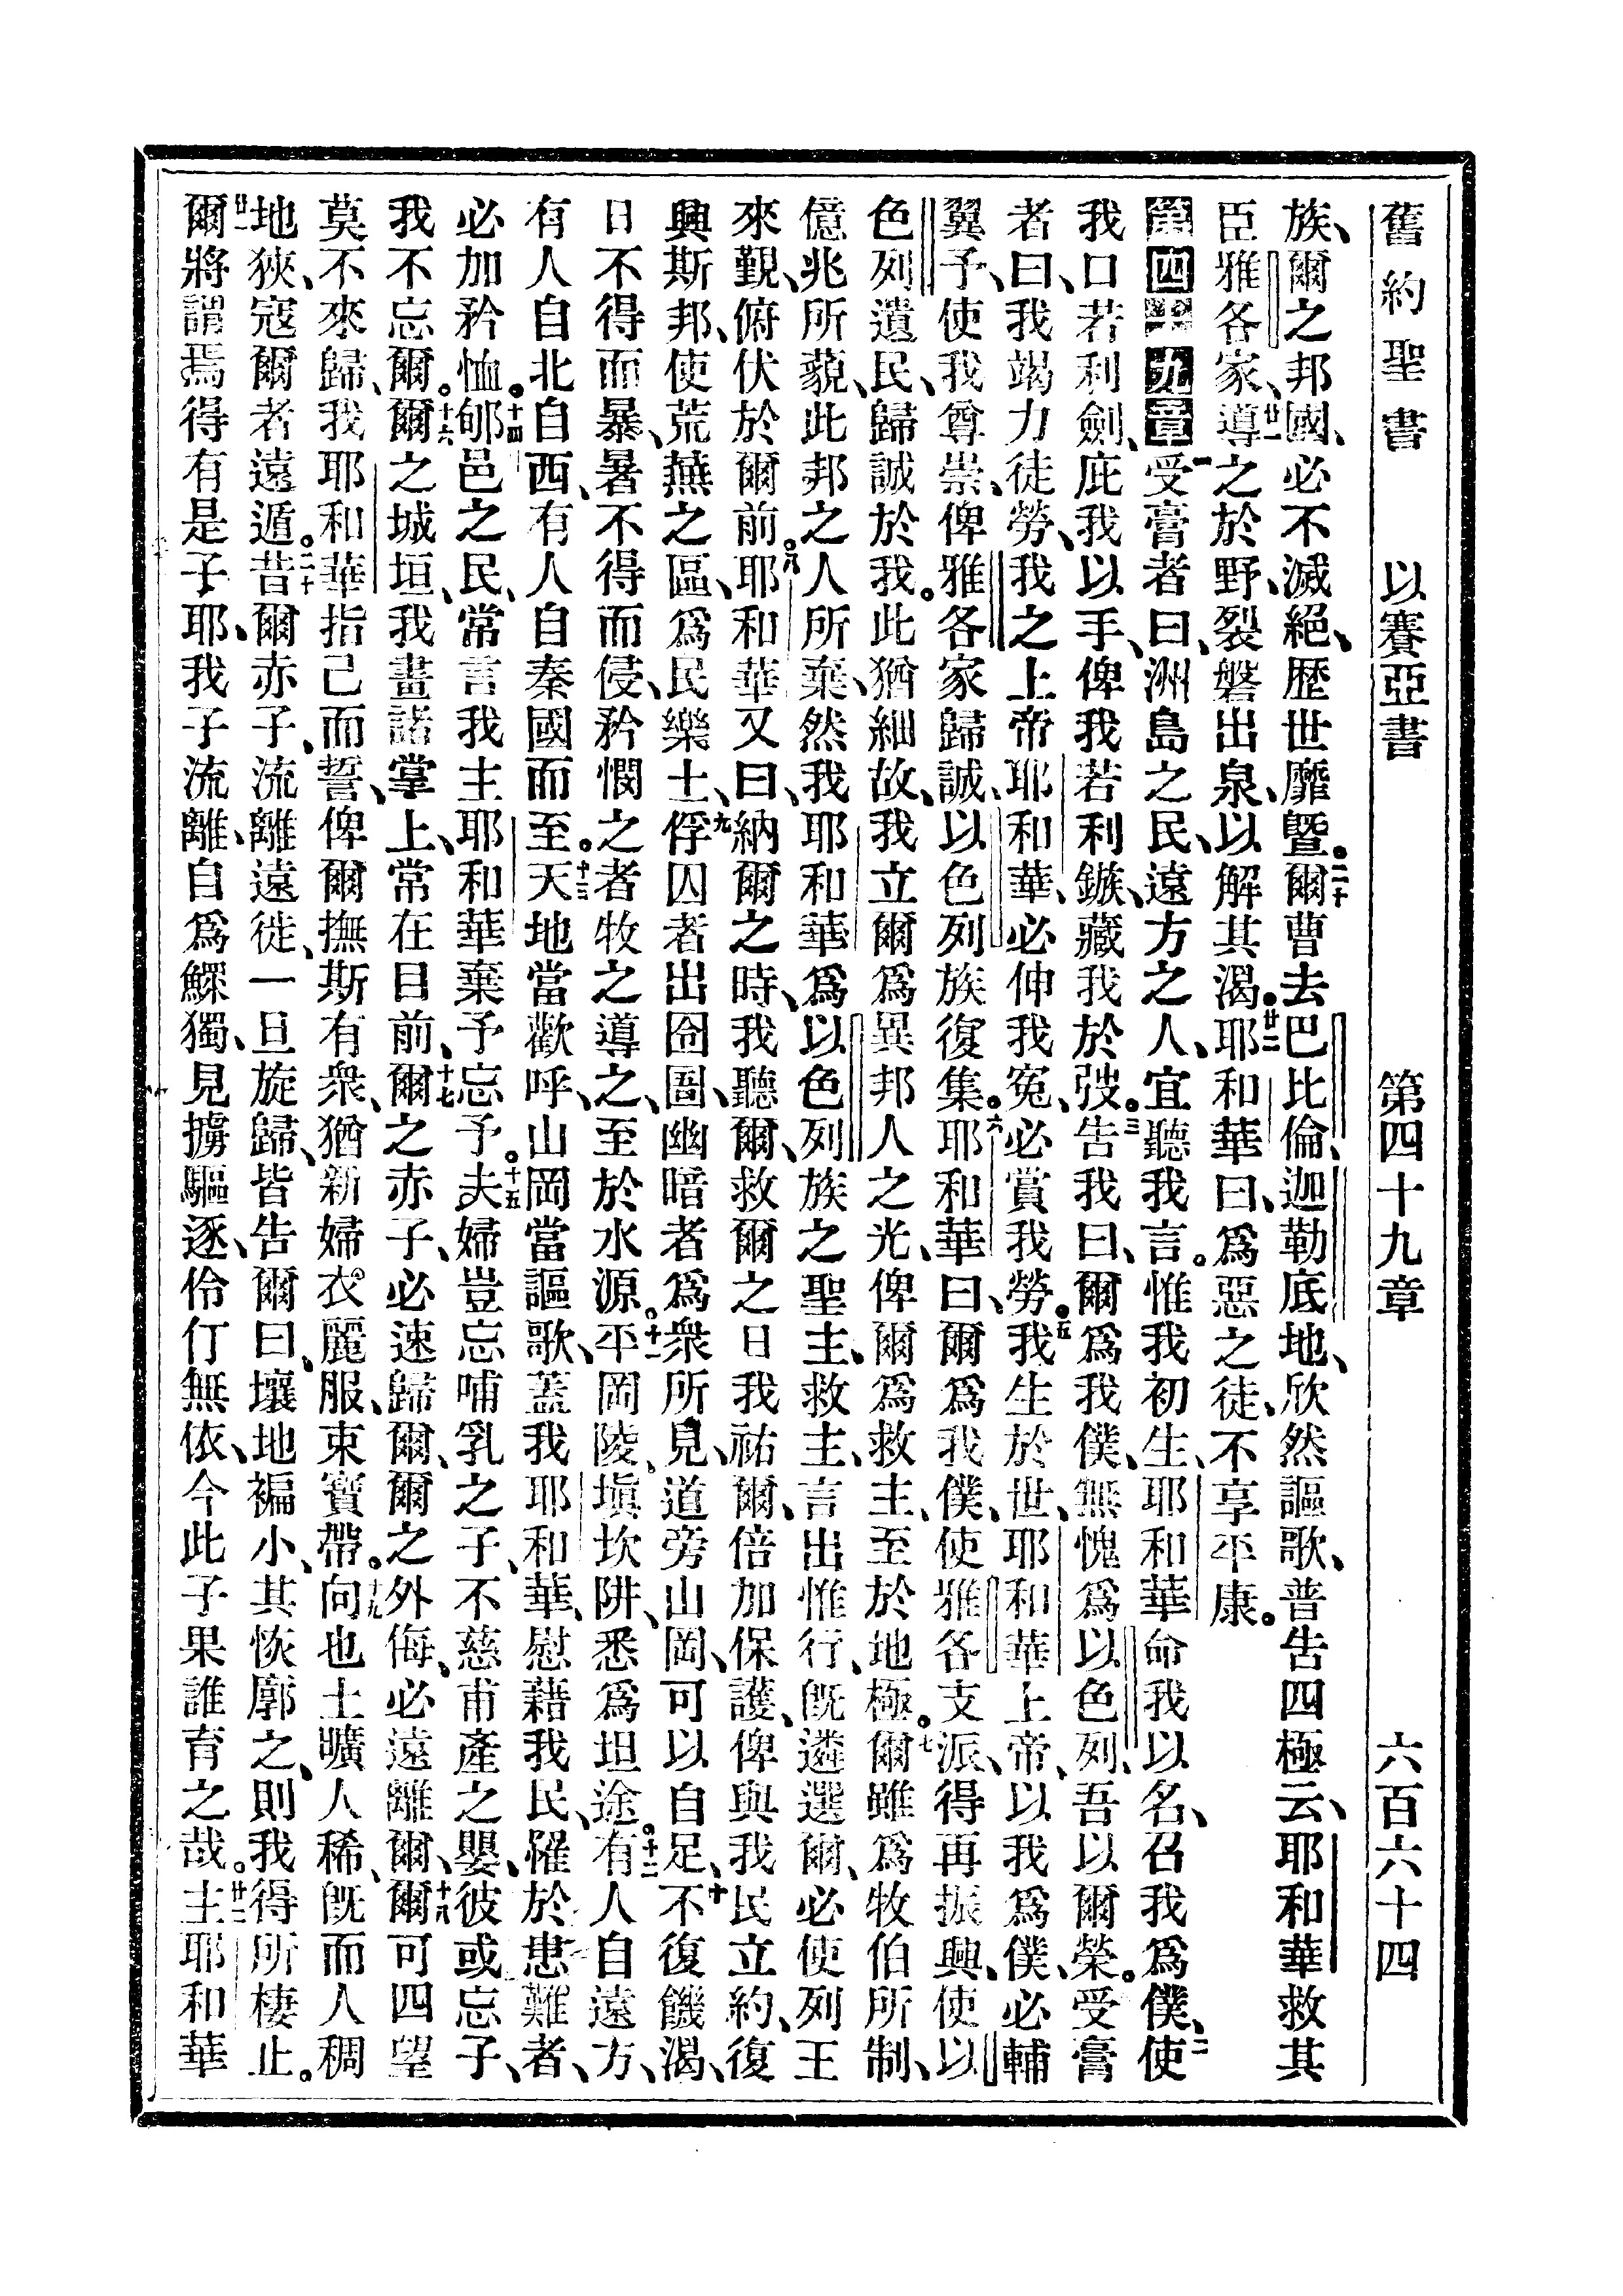 舊約聖書 以賽亞書 第四十九章 六百六十四
族、爾之邦國、必不滅絕、歷世靡曁。二十爾曹去巴比倫、迦勒底地、欣然謳歌、普告四極云、耶和華救其
臣雅各家、廿一導之於野、裂磐出泉、以解其渴。廿二耶和華曰、爲惡之徒、不享平康。
第四十九章一受膏者曰、洲島之民、遠方之人、宜聽我言。惟我初生、耶和華命我以名、召我爲僕、二使
我口若利劍、庇我以手、俾我若利鏃、藏我於弢。三告我曰、爾爲我僕、無愧爲以色列、吾以爾榮。受膏
者曰、我竭力徒勞、我之上帝耶和華、必伸我冤、必賞我勞。五我生於世、耶和華上帝、以我爲僕、必輔
翼予、使我尊崇、俾雅各家歸誠、以色列族復集。六耶和華曰、爾爲我僕、使雅各支派、得再振興、使以
色列遺民、歸誠於我。此猶細故、我立爾爲異邦人之光、俾爾爲救主、至於地極。七爾雖爲牧伯所制、
億兆所藐、此邦之人所棄、然我耶和華爲以色列族之聖主、救主、言出惟行、旣遴選爾、必使列王
來覲、俯伏於爾前。八耶和華又曰、納爾之時、我聽爾、救爾之日我祐爾、倍加保護、俾與我民立約、復
興斯邦、使荒蕪之區、爲民樂土、九俘囚者出囹圄、幽暗者爲衆所見、道旁山岡、可以自足、十不復饑渴、
日不得而暴、暑不得而侵、矜憫之者牧之導之、至於水源。十一平岡陵、塡坎阱、悉爲坦途。十二有人自遠方、
有人自北自西、有人自秦國而至。十三天地當歡呼、山岡當謳歌、蓋我耶和華、慰藉我民、罹於患難者、
必加矜恤。十四郇邑之民、常言我主耶和華棄予忘予。十五夫婦豈忘哺乳之子、不慈甫產之嬰、彼或忘子、
我不忘爾。十六爾之城垣、我畫諸掌上、常在目前、十七爾之赤子、必速歸爾、爾之外侮、必遠離爾、十八爾可四望
莫不來歸、我耶和華指己而誓、俾爾撫斯有衆、猶新婦衣麗服、束寶帶。十九向也土曠人稀、旣而人稠
地狹、寇爾者遠遁。二十昔爾赤子、流離遠徙、一旦旋歸、皆告爾曰、壤地褊小、其恢廓之、則我得所棲止。
廿一爾將謂焉得有是子耶、我子流離、自爲鰥獨、見擄驅逐、伶仃無依、今此子果誰育之哉。廿二主耶和華